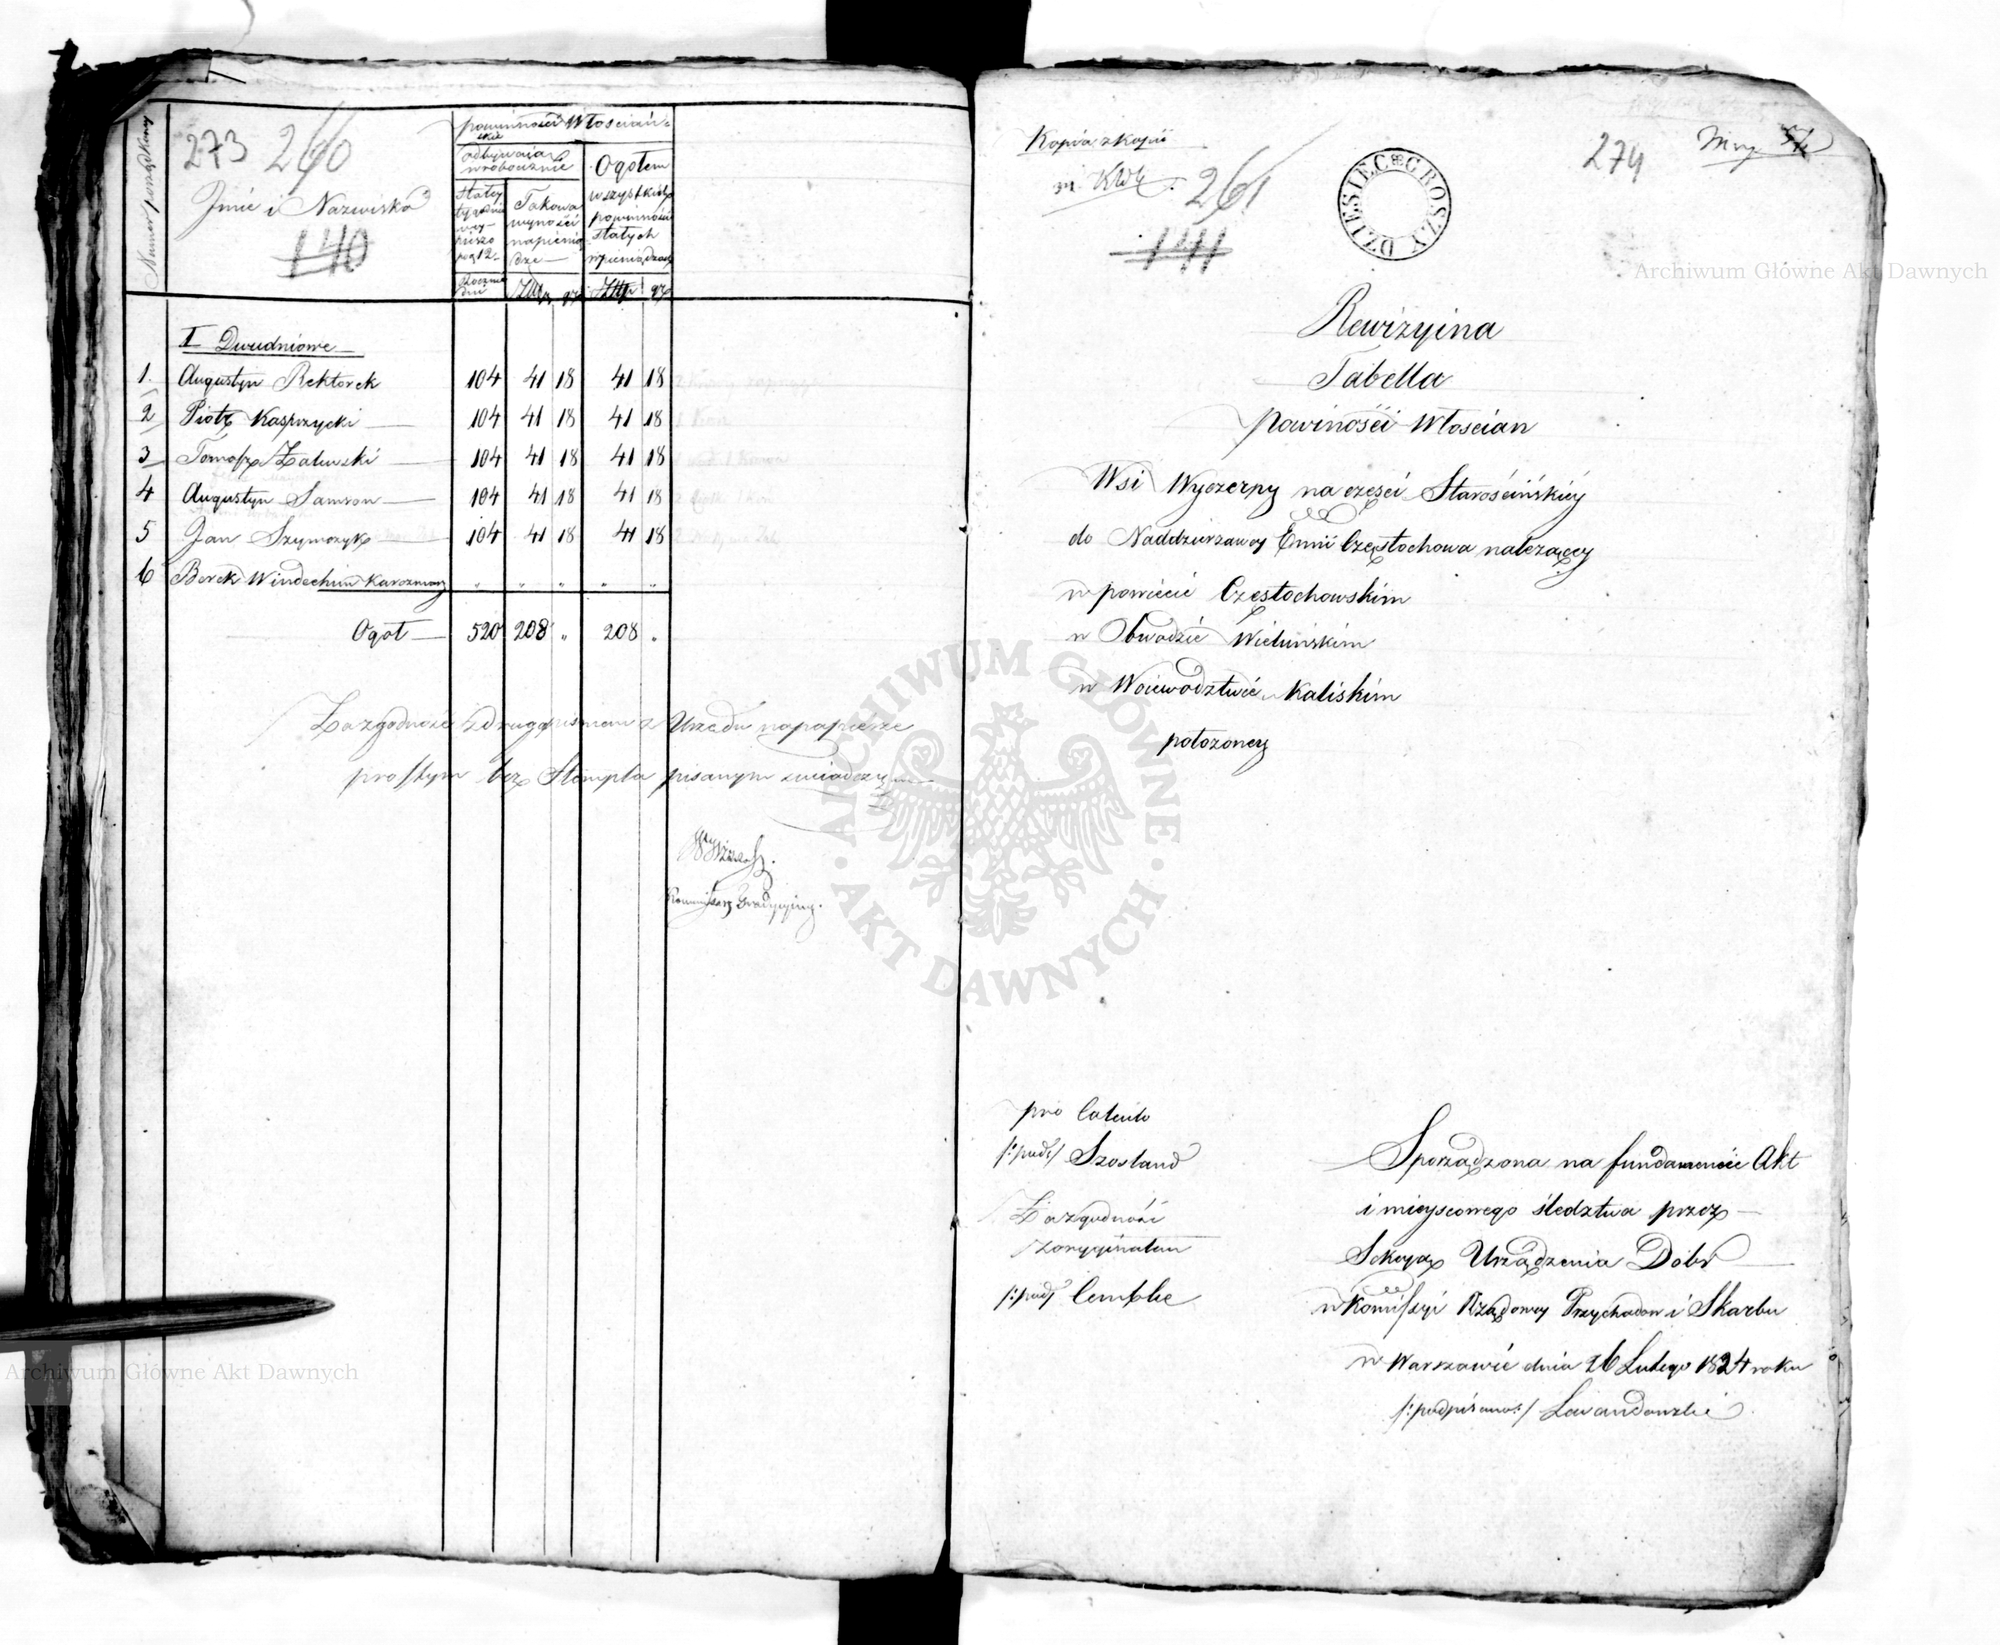 273 260
Numer porządkowy
Jmie i Nazwiska
140
powinności Włościań-
skie
odbywaią
w robociznie
Ogołem
wszystkich
powinności
stałych
w pieniądzach
Takowa
wynosi
na pienią
dze
Rocznie
dni
Złp gr
Złp gr
I Dwudniowe
1. Augustyn Rektorek 104 41 18 41 18
2 Piotr Kasprzycki 104 41 18 41 18
3 Tomasz Zaluski 104 41 18 41 18
4 Augustyn Samson 104 41 18 41 18
5 Jan Szymczyk 104 41 18 41 18
6 Berek Windechim Karczmarz " " " " "
Ogoł 520 208 " 208 "
Za zgodność z drugopismem z Urzędu na papierze
prostym bez Stempla pisanym zwiadczy
Kommissarz
Kopia z kopii
261
141
DZIESIĘC GROSZY
274
Rewizyina
Tabella
powiności Włoscian
Wsi Wyczerpy na części Starościńskiéy
do Naddzierzawy Ennii Częstochowa należący
w powiecie Częstochowskim
w Obwodzie Wieluńskim
w Woiewodztwie Kaliskim
położoney
pro Calculo
/:pod:/ Szostand
Za zgodność
z oryginałem
/:pod/ Cembke
Sporządzona na fundamencie Akt
i mieyscowego śledztwa przez
Sekcyą Urządzenia Dobr
w Kommissyi Rządowey Przychodow i Skarbu
w Warszawie dnia 26 Lutego 1824 roku
/:podpisano:/ Lewandowski
Archiwum Główne Akt Dawnych
Archiwum Główne Akt Dawnych
ARCHIWUM GŁÓWNE • AKT DAWNYCH •